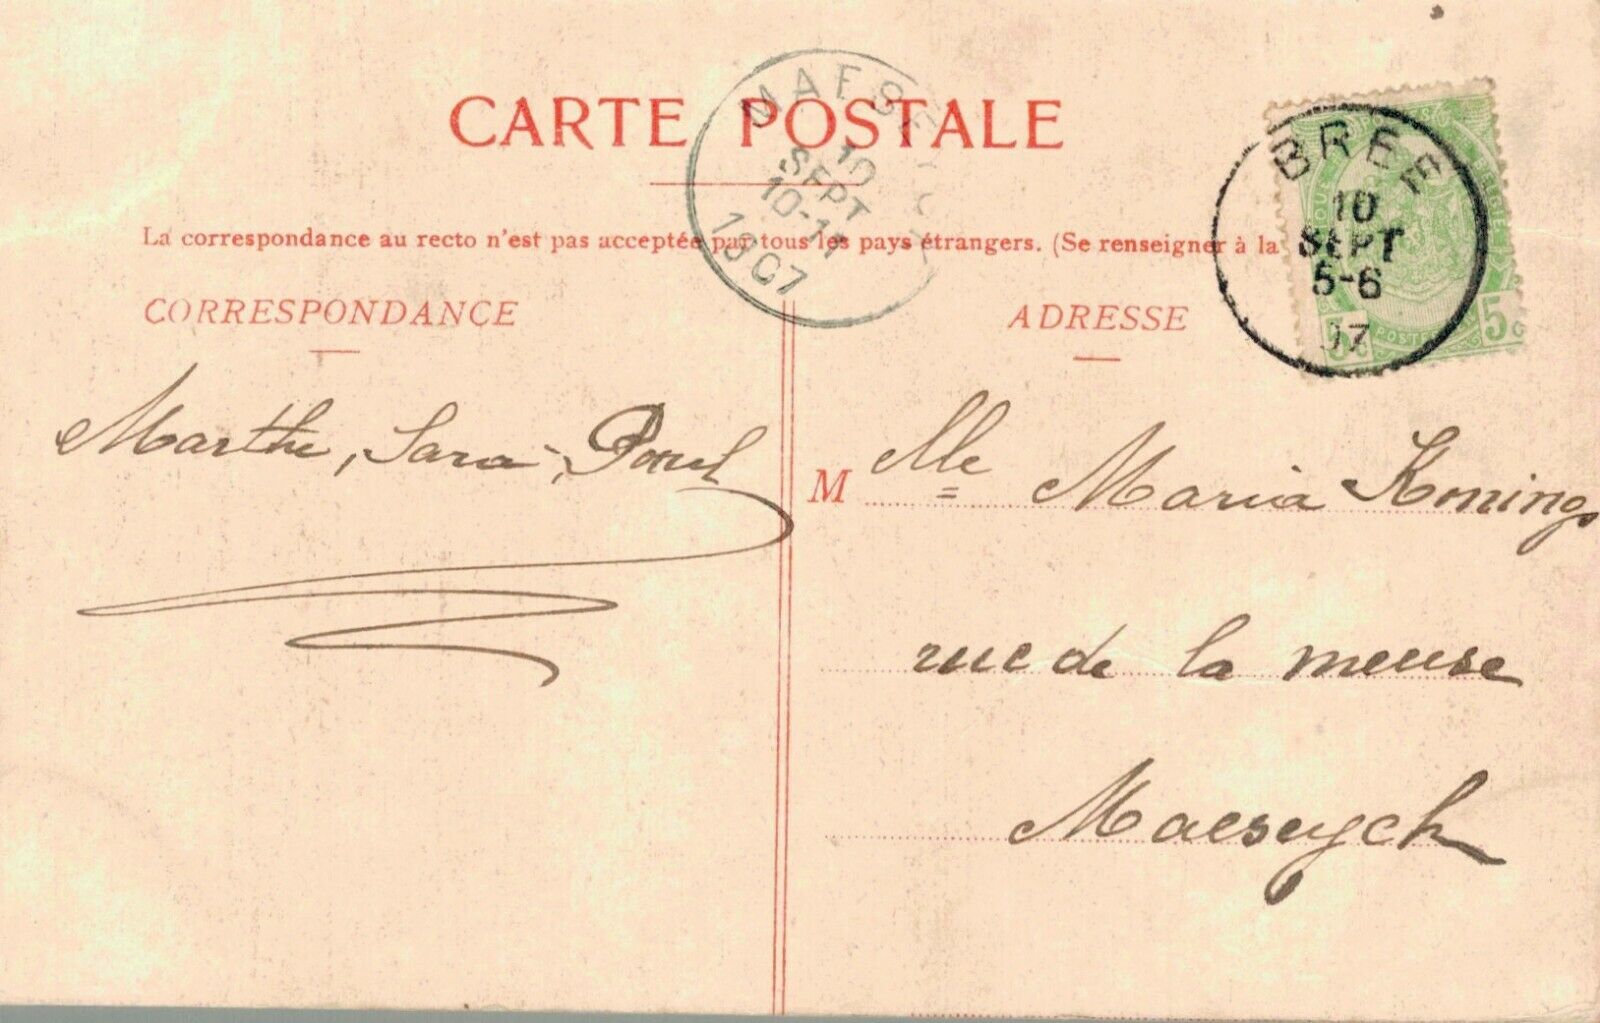 CARTE POSTALE
MAESEYCK
10
SEPT
10-11
1907
BREE
10
SEPT
5-6
07
BELGIQUE
POSTES
5c 5c
La correspondance au recto n'est pas acceptée par tous les pays étrangers. (Se renseigner à la
CORRESPONDANCE
ADRESSE
Marthe, Sara,
M Mlle Maria Konings
rue de la meuse
Maeseyck